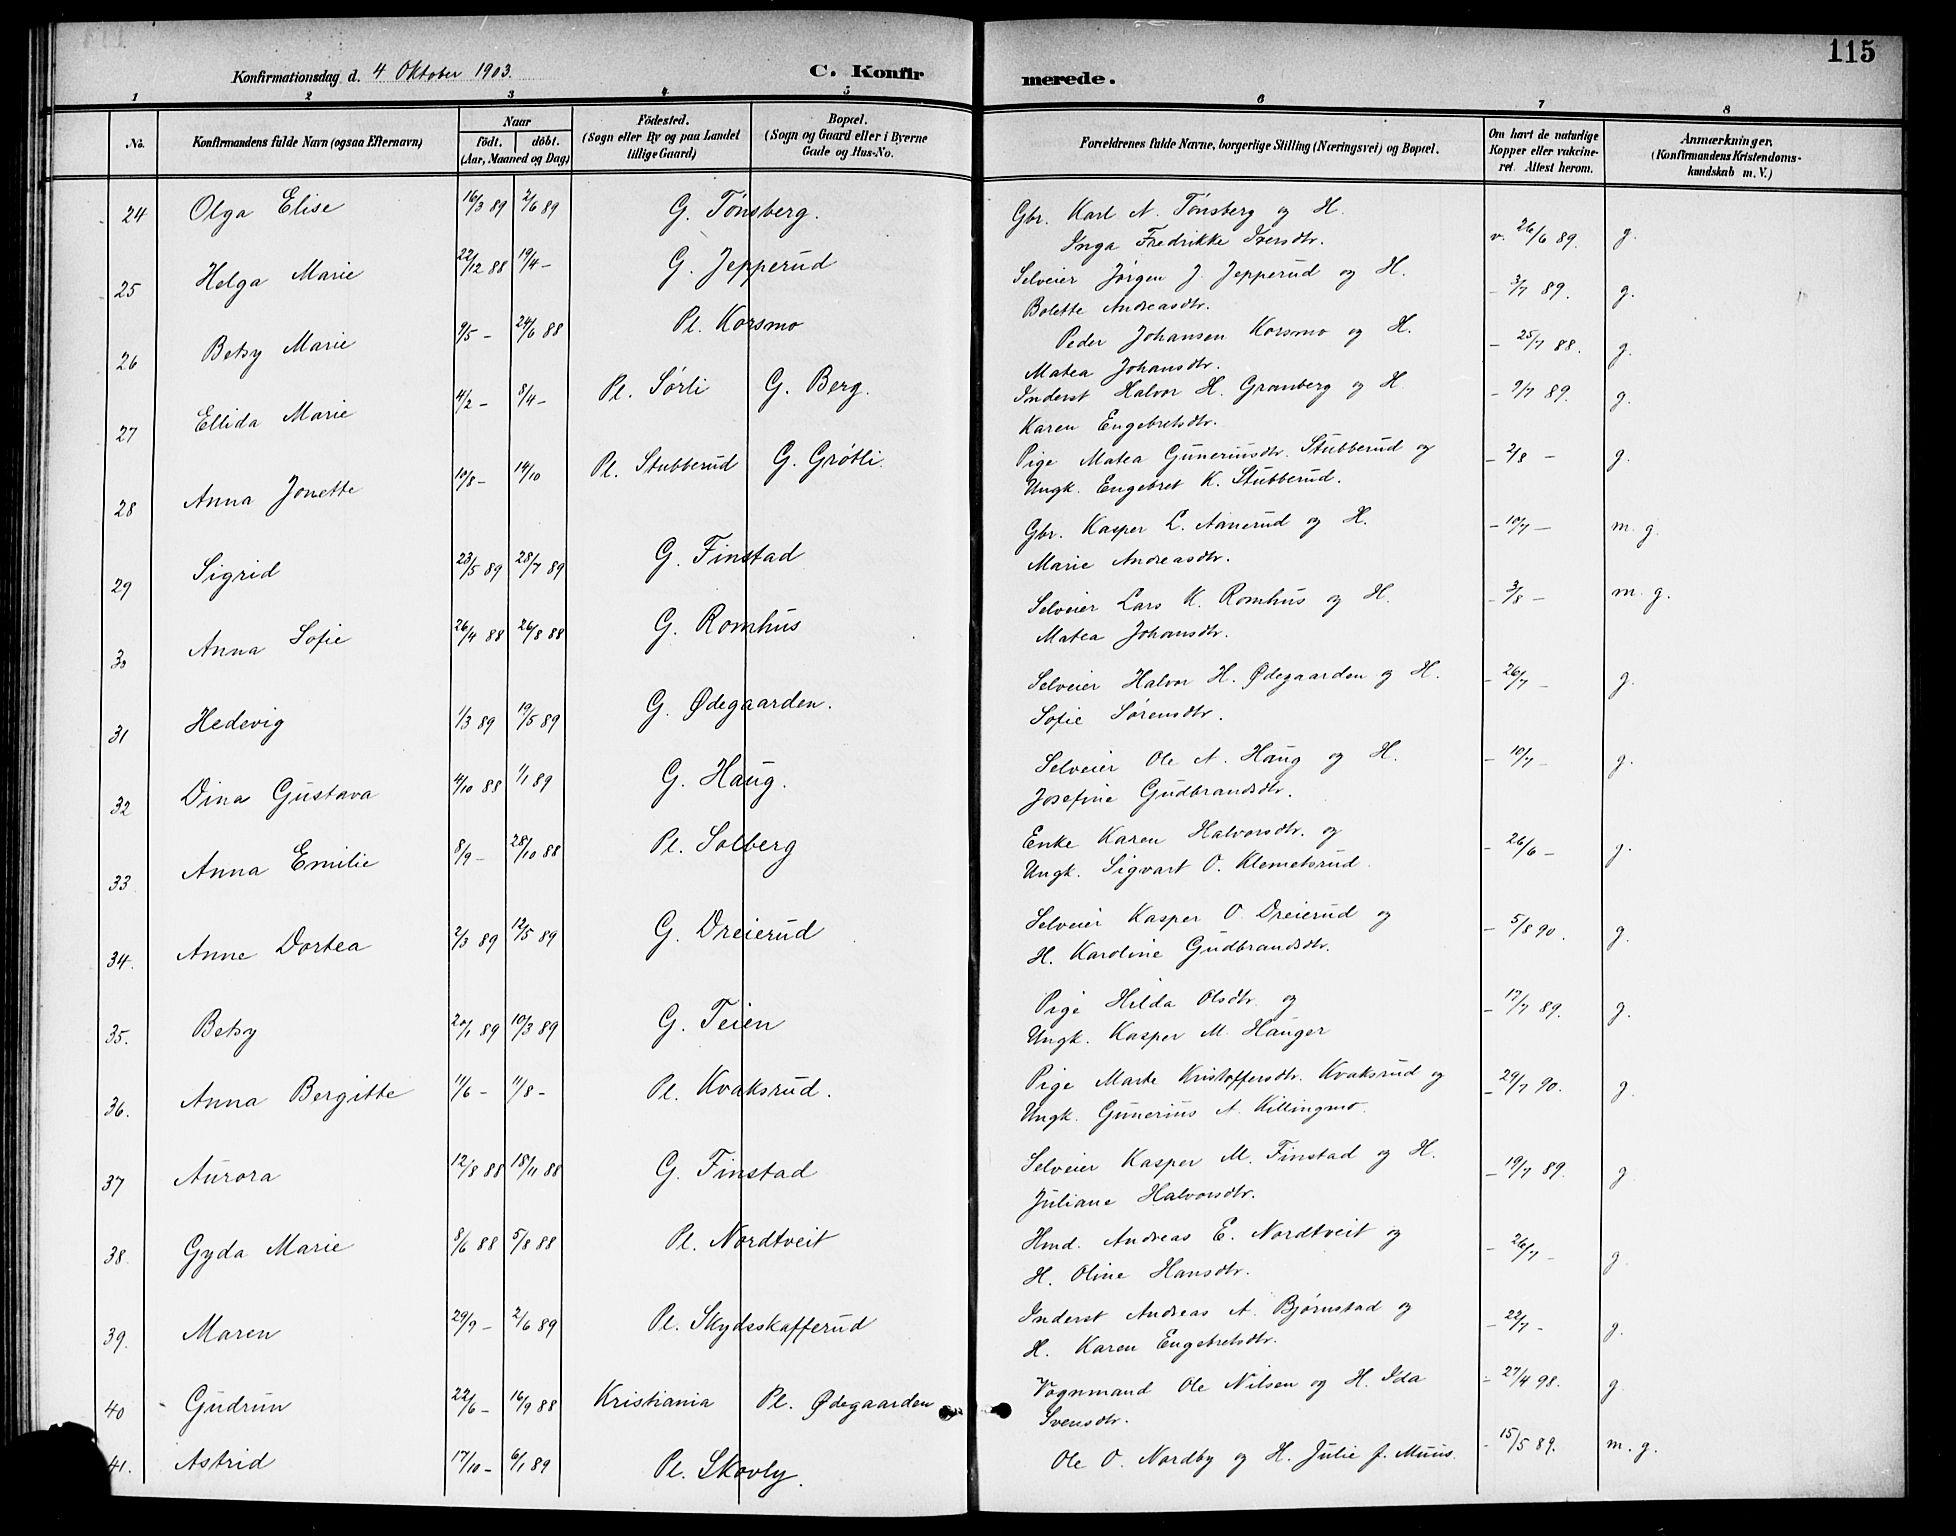 115
Konfirmationsdag d. 4 Oktober 1903. C. Konfirmerede.
1 2 3 4 5 6 7 8
No. Konfirmandens fulde Navn (ogsaa Efternavn) Naar födt. döbt. (Aar, Maaned og Dag) Födested. (Sogn eller By og paa Landet tillige Gaard) Bopæl. (Sogn og Gaard eller i Byerne Gade og Hus-No. Forældrenes fulde Navne, borgerlige Stilling (Næringsvei) og Bopæl. Om havt de naturlige Kopper eller vakcineret. Attest herom. Anmærkninger. (Konfirmandens Kristendomskundskab m. V.)
24 Olga Elise 16/3 89 2/6 89 G. Tönsberg. Gbr. Karl N. Tönsberg og H. v. 26/6 89. g.
Inga Fredrikke Iversdtr.
25 Helga Marie 22/12 88 19/4 - G. Jepperud Selveier Jörgen J. Jepperud og H. - 3/7 89. g.
Bolette Andreasdtr.
26 Betsy Marie 9/5 - 24/6 88 Pl. Korsmo Peder Johansen Korsmo og H. - 25/7 88. g.
Matea Johansdtr.
27 Ellida Marie 4/2 - 8/4 - Pl. Sörli G. Berg. Inderst Halvor H. Granberg og H. - 9/7 89. g.
Karen Engebretsdtr.
28 Anna Jonette 10/8 - 14/10 Pl. Stubberud G. Grötli. Pige Matea Guneriusdtr. Stubberud og - 2/8 - g.
Ungk. Engebret K. Stubberud.
29 Sigrid 23/5 89 28/7 89 G. Finstad Gbr. Kasper L. Aanerud og H. - 10/7 - m. g.
Marie Andreasdtr.
30 Anna Sofie 26/4 88 26/8 88 G. Romhus Selveier Lars K. Romhus og H. - 3/8 - m. g.
Matea Johansdtr.
31 Hedevig 1/3 89 19/5 89 G. Ødegaarden. Selveier Halvor H. Ødegaarden og H. - 26/7 - g.
Sofie Sörensdtr.
32 Dina Gustava 4/10 88 1/1 89 G. Haug. Selveier Ole A. Haug og H. - 10/7 - g.
Josefine Gudbrandsdtr.
33 Anna Emilie 8/9 - 28/10 88 Pl. Solberg Enke Karen Halvorsdtr. og - 26/6 - g.
Ungk. Sigvart O. Klemetsrud.
34. Anne Dortea 2/3 89 12/5 89 G. Dreierud Selveier Kasper O. Dreierud og - 5/8 90. g.
H. Karoline Gudbrandsdtr.
35. Betsy 20/1 89 10/3 89 G. Teien Pige Hilda Olsdtr. og - 17/7 89. g.
Ungk. Kasper M. Hauger
36. Anna Bergitte 11/6 - 11/8 - Pl. Kvaksrud. Pige Marte Kristoffersdtr. Kvaksrud og - 29/7 90. g.
Ungk. Gunerius A. Killingmo.
37 Aurora 12/8 88 18/11 88 G. Finstad Selveier Kasper M. Finstad og H. - 19/7 89. g
Juliane Halvorsdtr.
38. Gyda Marie 8/6 88 5/8 88 Pl. Nordtveit Hmd. Andreas E. Nordtveit og - 26/7 - g.
H. Oline Hansdtr.
39. Maren 29/9 - 2/6 89 Pl. Skydsskafferud Inderst Andreas A. Bjørnstad og - 22/7 - g.
H. Karen Engebretsdtr.
40 Gudrun 22/6 - 16/9 88 Kristiania Pl. Ødegaarden Vognmand Ole Nilsen og H. Ida - 27/4 98. g
Svensdtr.
41. Astrid 17/10 - 6/1 89 Pl. Skovly. Ole O. Nordby og H. Julie f. Muus. - 15/5 89. m. g.